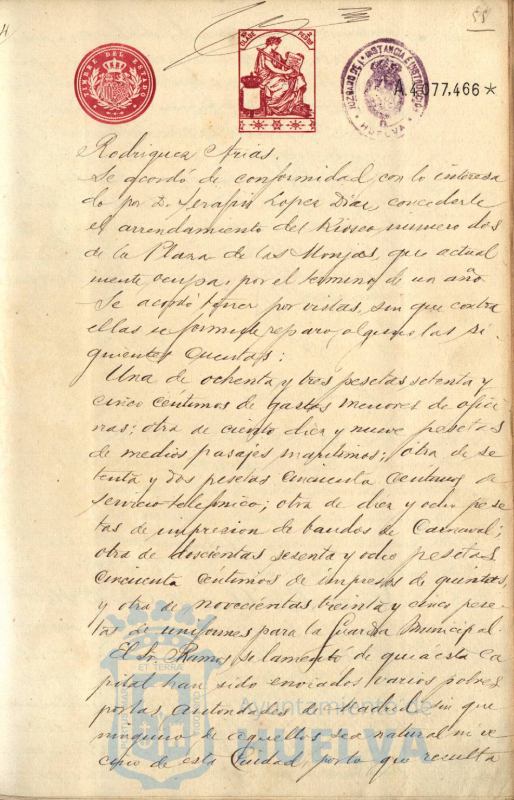 55
TIMBRE DEL ESTADO
CLASE PESETAS
JUZGADO DE 1ª INSTANCIA E INSTRUCCION
HUELVA
A.4.077.466*
Rodriguez Arias.
Se acordó de conformidad con lo interesa
do por D. Serafin Lopez Diaz concederle
el arrendamiento del Kiosco numero dos
de la Plaza de las Monjas, que actual
mente ocupa, por el termino de un año
Se acordó tener por vistas, sin que contra
ellas se formule reparo alguno las si
guientes cuentas:
Una de ochenta y tres pesetas setenta y
cinco céntimos de gastos menores de ofici
nas; otra de ciento diez y nueve pesetas
de medios pasajes maritimos; otra de se
tenta y dos pesetas cincuenta centimos de
servicio telefonico; otra de diez y ocho pese
tas de impresion de bandos de Carnaval;
otra de doscientas sesenta y ocho pesetas
cincuenta centimos de impresos de quintas,
y otra de novecientas treinta y cinco pese
tas de uniformes para la Guardia Municipal.
El Sr. Ramos se lamentó de que á esta ca
pital han sido enviados varios pobres
por las autoridades de Madrid sin que
ninguno de aquellos sea natural ni ve
cino de esta Ciudad, por lo que resulta
ET TERRA
Ayuntamiento de
HUELVA